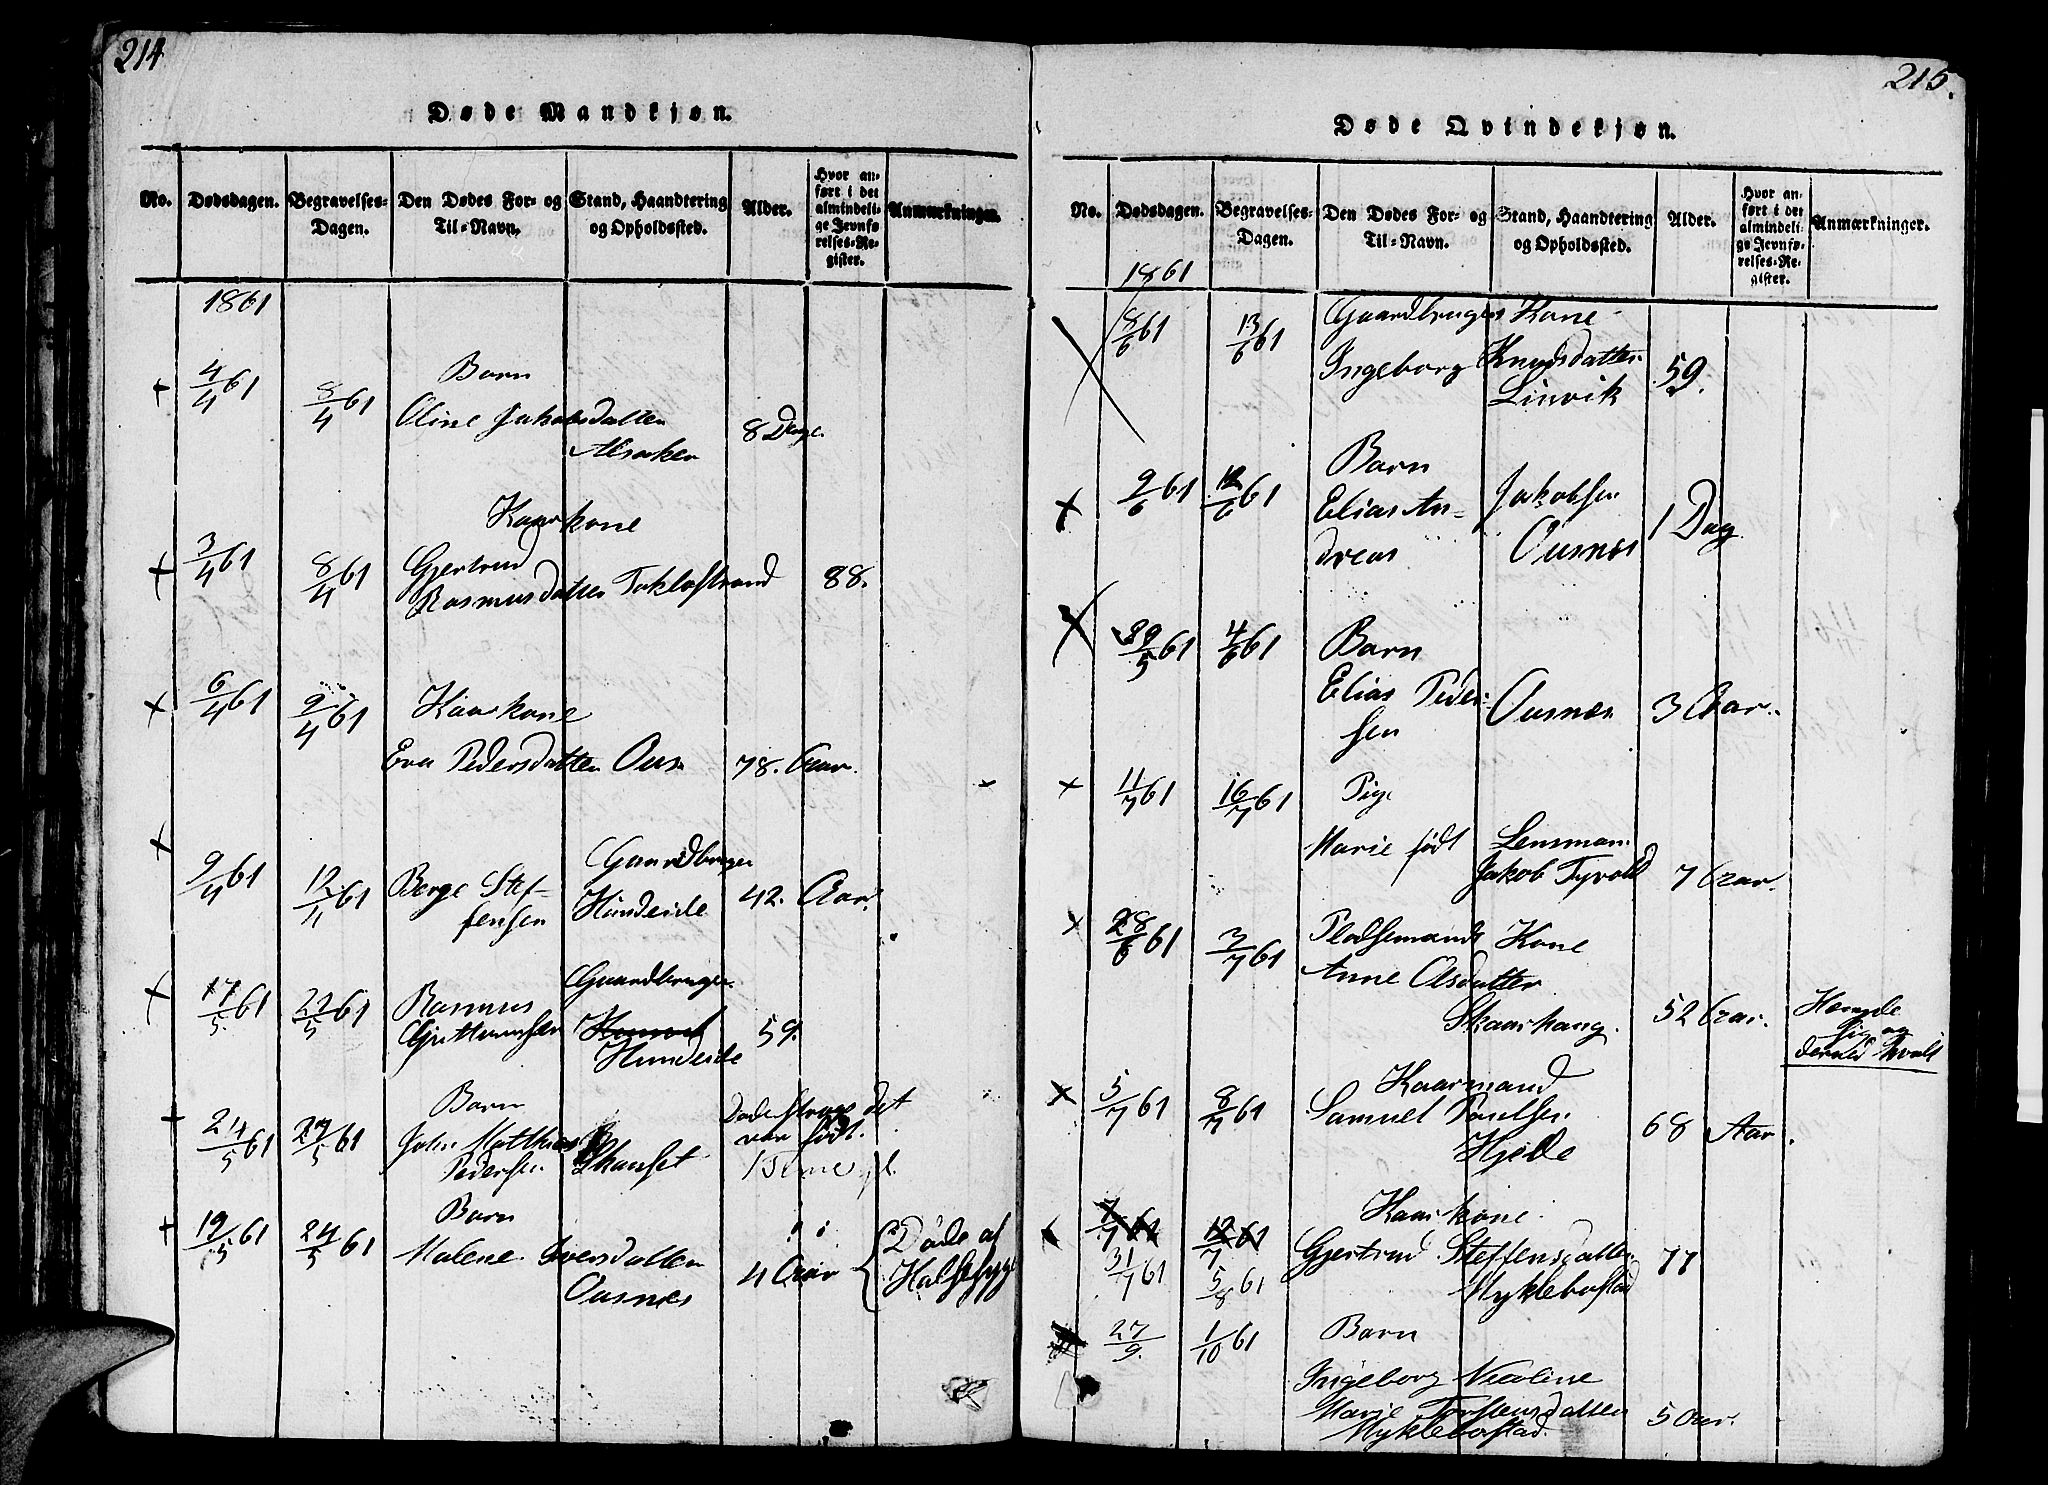 214
Døde Mandkjøn.
No.
Dødsdagen.
Begravelses-
Dagen.
Den Dødes For- og
Til-Navn.
Stand, Haandtering
og Opholdssted.
Alder.
Hvor an-
ført i det
almindeli-
ge Jevnfø-
relses-Re-
gister.
Anmærkninger.
1861
+ 4/4 61
8/4 61
Barn
Oline Jakobsdatter
Alsaker
8 Dage.
+ 3/4 61
8/4 61
Kaarkone
Gjertrud
Rasmusdatter Taklostrand
88.
+ 6/4 61
9/4 61
Kaarkone
Eva Pedersdatter Ous
78. Aar.
+ 9/4 61
12/4 61
Berge Stef-
fensen
Gaardbruger
Hundeide
42. Aar.
+ 17/5 61
22/5 61
Rasmus
Guttormsen
Gaardbruger
Hundeide
59.
+ 24/5 61
27/5 61
Barn
John Matthias
Pedersen
Skauset
Døde strags det
var født.
+ 19/5 61
24/5 61
Barn
Malene Iversdatter
Ousnes
4 Aar
Døde af
Halsesyge
215.
Døde Qvindekjøn.
No.
Dødsdagen.
Begravelses-
Dagen.
Den Dødes For- og
Til-Navn.
Stand, Haandtering
og Opholdssted.
Alder.
Hvor an-
ført i det
almindeli-
ge Jevnfø-
relses-Re-
gister.
Anmærkninger.
1861
8/6 61
13/6 61
Gaardbrugers Kone
Ingeborg Knudsdatter
Linvik
59.
+ 9/6 61
12/6 61
Barn
Elias An-
dreas
Jakobsen
Ousnes
1 Dag
29/5 61
4/6 61
Barn
Elias Peder-
sen
Ousnes
3 Aar.
+ 11/7 61
16/7 61
Pige
Marie født
Lensman
Jakob Tyvold
7 Aar.
+ 28/6 61
3/7 61
Pladsemands Kone
Anne Olsdatter
Skaarhaug.
52 Aar.
Hængde
sig og
derved qvalt
5/7 61
8/7 61
Kaarmand
Samuel Poulsen
Hjelle
68 Aar.
7/7 61
12/7 61
31/7 61
5/8 61
Kaarkone
Gjertrud Steffensdatter
Myklebostad
77
27/9.
1/10 61
Barn
Ingeborg Nicoline
Marie Torstensdatter
Myklebostad.
5 Aar.